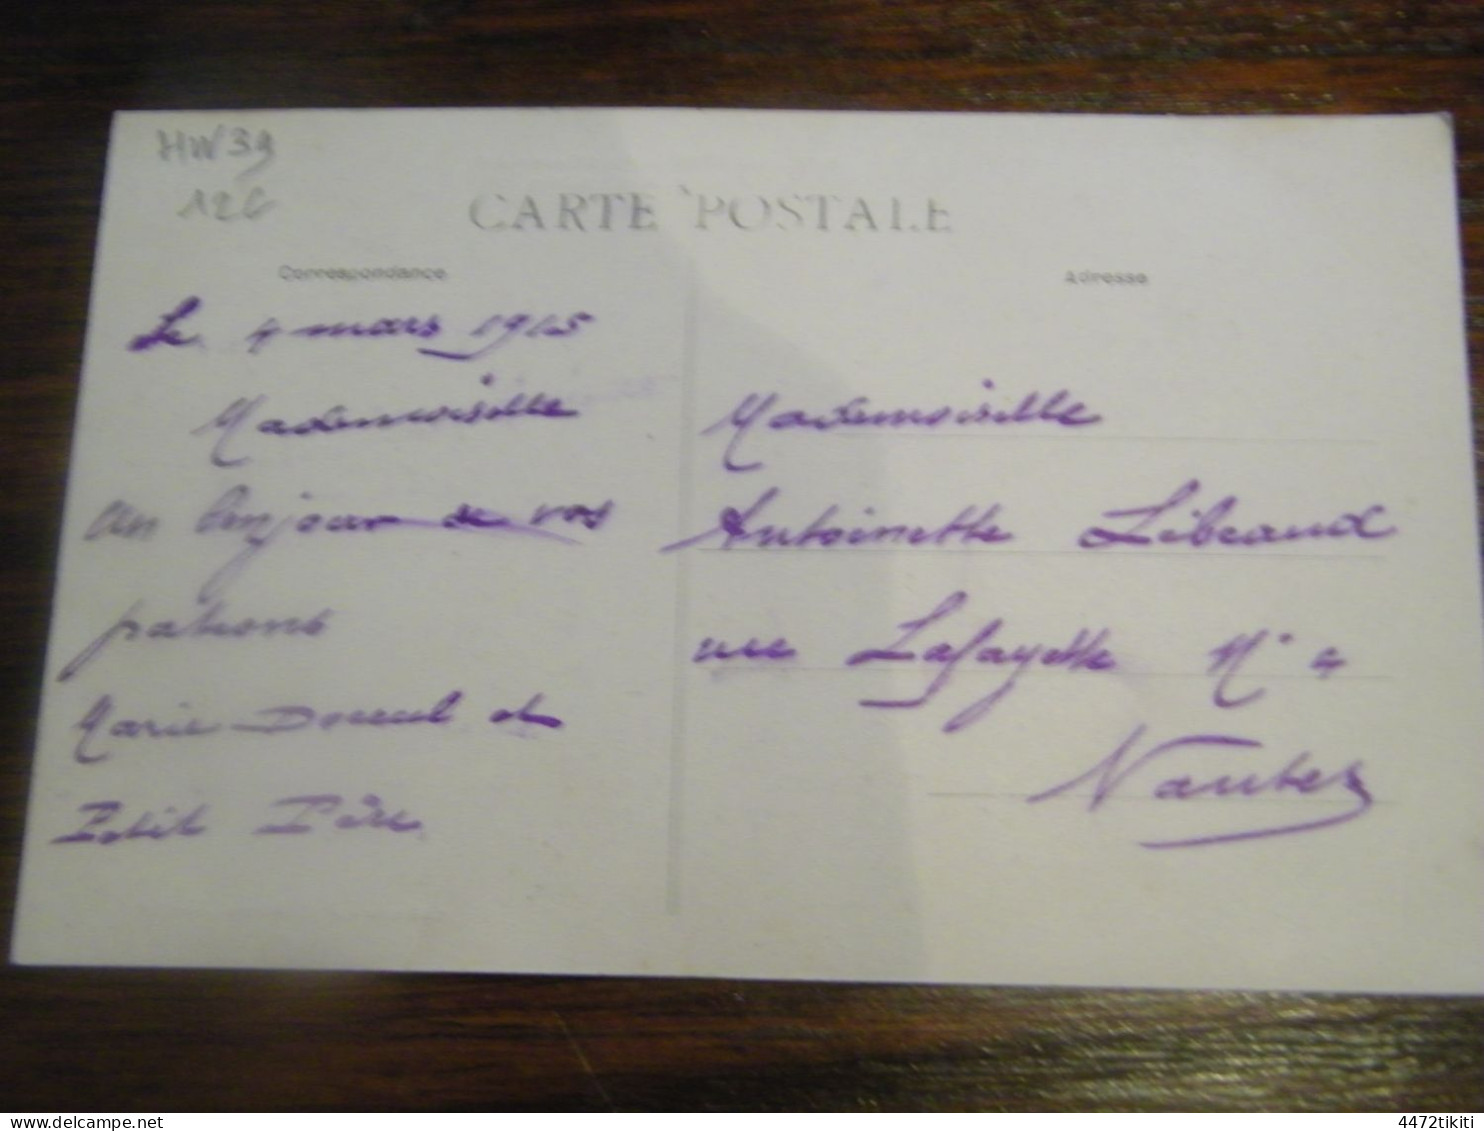 HW39
126
CARTE POSTALE
Correspondance
Adresse
Le 4 mars 1915
Mademoiselle
un bonjour de vos
patrons
Marie et
Petit Père
Mademoiselle
Antoinette Libeaud
rue Lafayette N° 4
Nantes
delcampe.net
4472tikiti